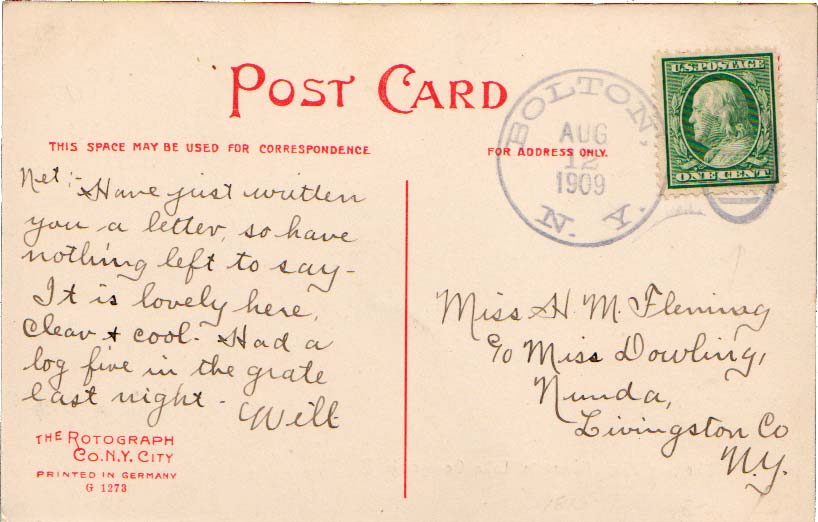 POST CARD
THIS SPACE MAY BE USED FOR CORRESPONDENCE
FOR ADDRESS ONLY.
BOLTON,
AUG
12
1909
N. Y.
U.S. POSTAGE
ONE CENT
Net:-Have just written
you a letter, so have
nothing left to say-
It is lovely here,
clear + cool. Had a
log fire in the grate
last night -
Will
THE ROTOGRAPH
CO. N.Y. CITY
PRINTED IN GERMANY
G 1273
Miss H. M. Fleming
c/o Miss Dowling,
Nunda,
Livingston Co
N.Y.